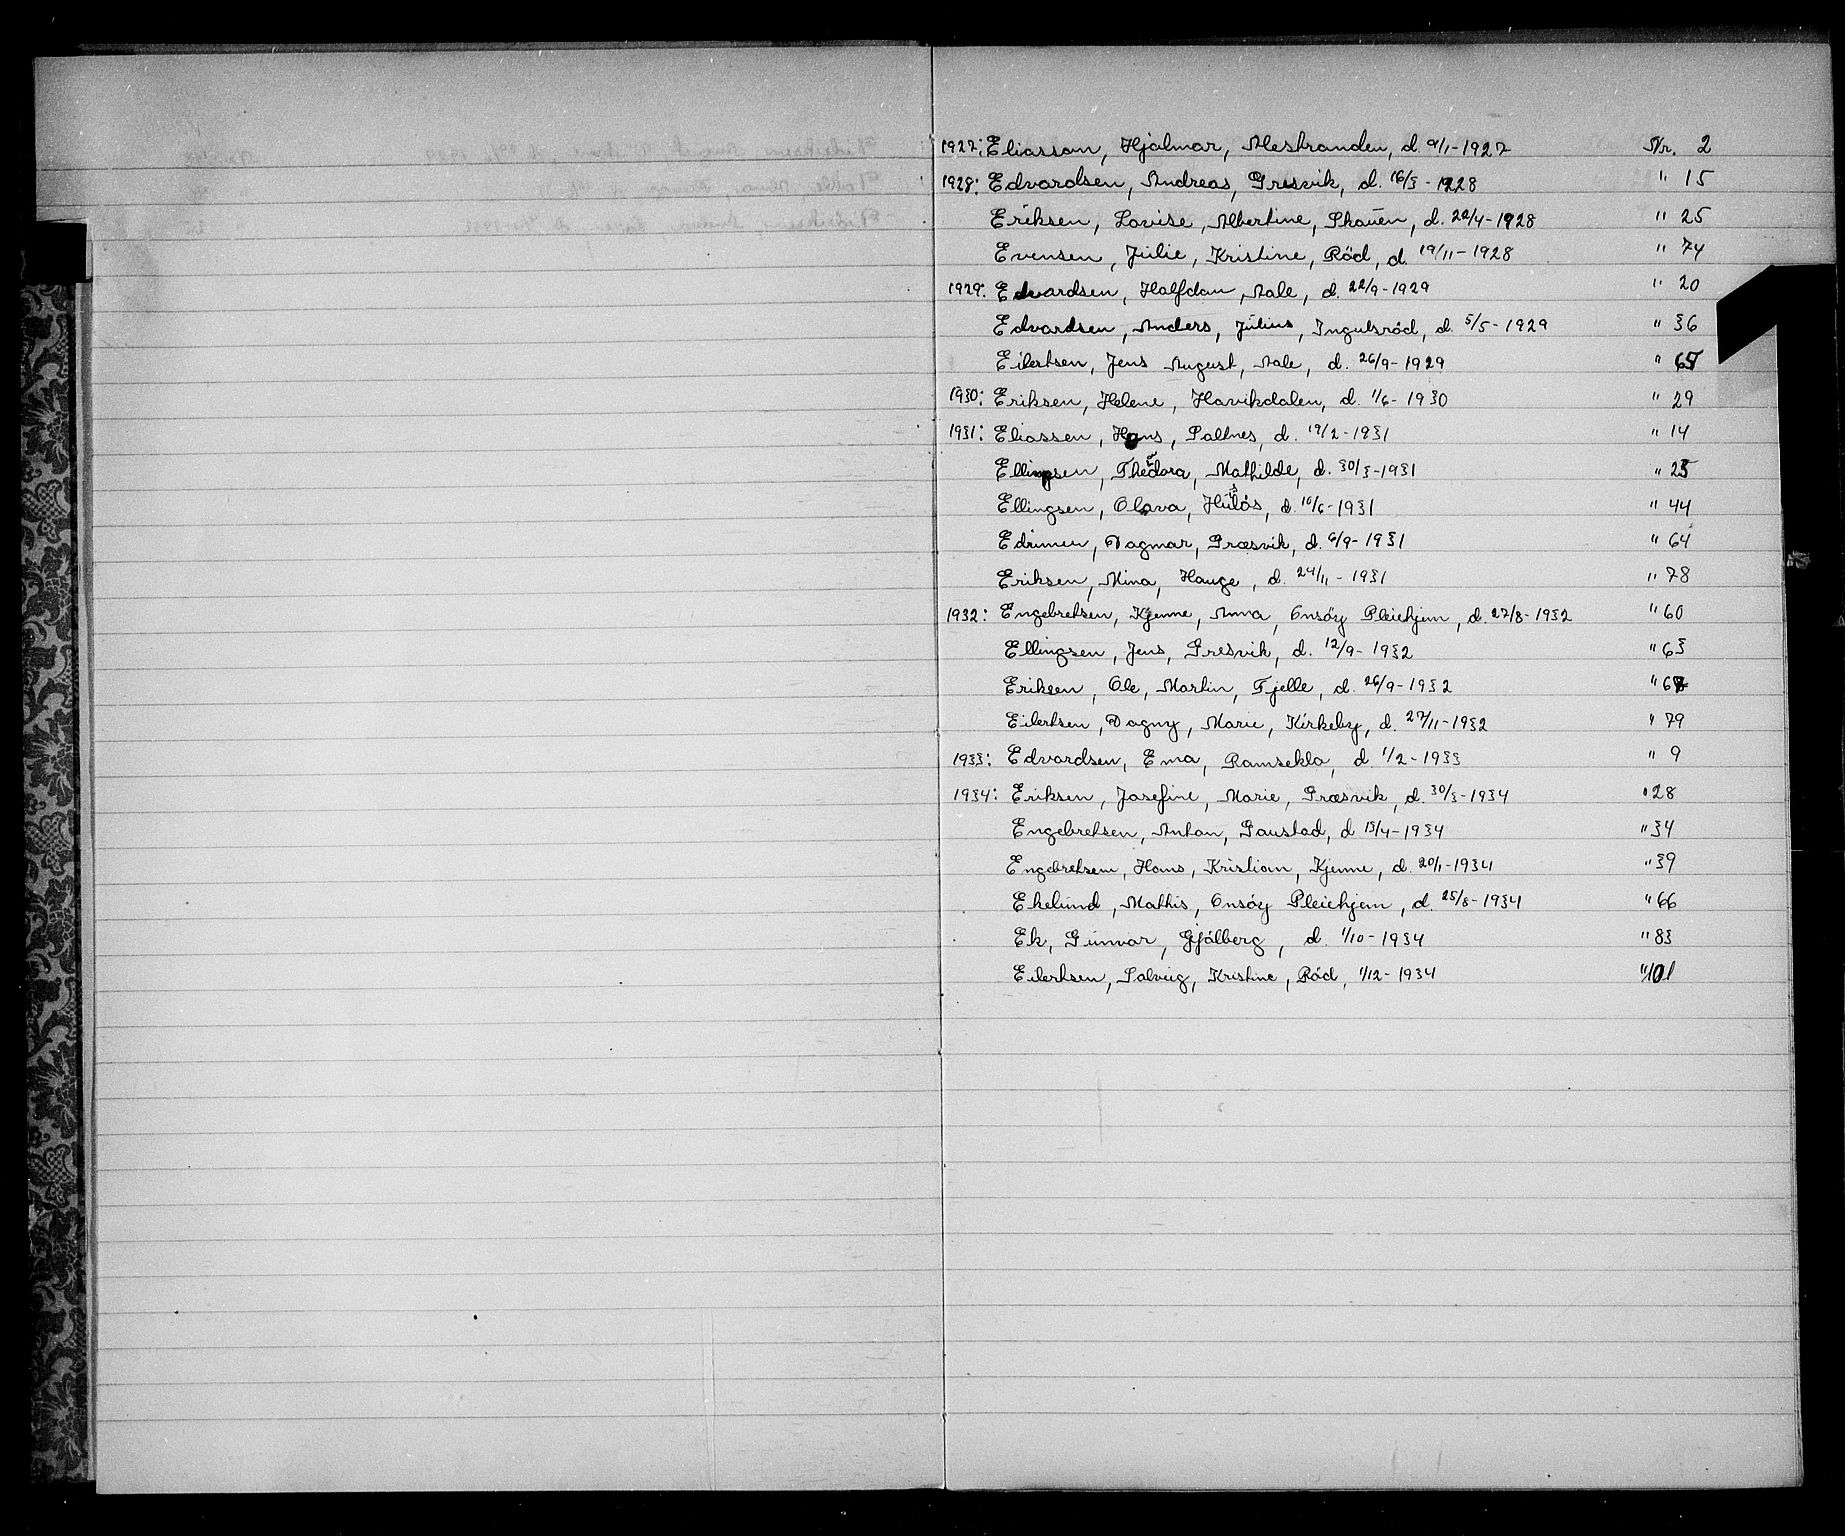 1927: Eliasson, Hjalmar, Alestranden, d. 9/1-1927 Nr. 2
1928: Edvardsen, Andreas, Gresvik, d. 16/3-1928 " 15
Eriksen, Lovise, Albertine, Skauen, d. 22/4-1928 " 25
Evensen, Julie, Kristine, Rød, d. 19/11-1928 " 74
1929: Edvardsen, Halfdan, Aale, d. 22/9-1929 " 20
Edvardsen, Anders, Julius, Ingulsrød, d. 5/5-1929 " 36
Eilertsen, Jens August, Aale, d. 26/9-1929 " 65
1930: Eriksen, Helene, Havikdalen, d. 1/6-1930 " 29
1931: Eliassen, Hans, Saltnes, d. 19/2-1931 " 14
Ellingsen, Theodora, Mathilde, d. 30/3-1931 " 25
Ellingsen, Olava, d. 10/6-1931 " 44
Edrimen, Dagmar, Græsvik, d. 6/9-1931 " 64
Eriksen, Mina, Hauge, d. 24/11-1931 " 78
1932: Engebretsen, Kjenne, Anna, Onsøy Pleiehjem, d. 27/8-1932 " 60
Ellingsen, Jens, Gresvik, d. 12/9-1932 " 63
Eriksen, Ole, Martin, Fjelle, d. 26/9-1932
Eilertsen, Dagny, Marie, Kirkeby, d. 27/11-1932 " 79
1933: Edvardsen, Ema, Ramsekla, d. 1/2-1933 " 9
1934: Eriksen, Josefine, Marie, Græsvik, d. 30/3-1934 " 28
Engebretsen, Anton, Gaustad, d 15/4-1934 " 34
Engebretsen, Hans, Kristian, Kjenne, d. 20/1-1934 " 39
Ekelund, Mathis, Onsøy Pleiehjem, d. 25/8-1934 " 66
Ek, Gunvar, Gjølberg, d. 1/10-1934 " 83
Eilertsen, Solveig, Kristine, Rød, 1/12-1934 " 101